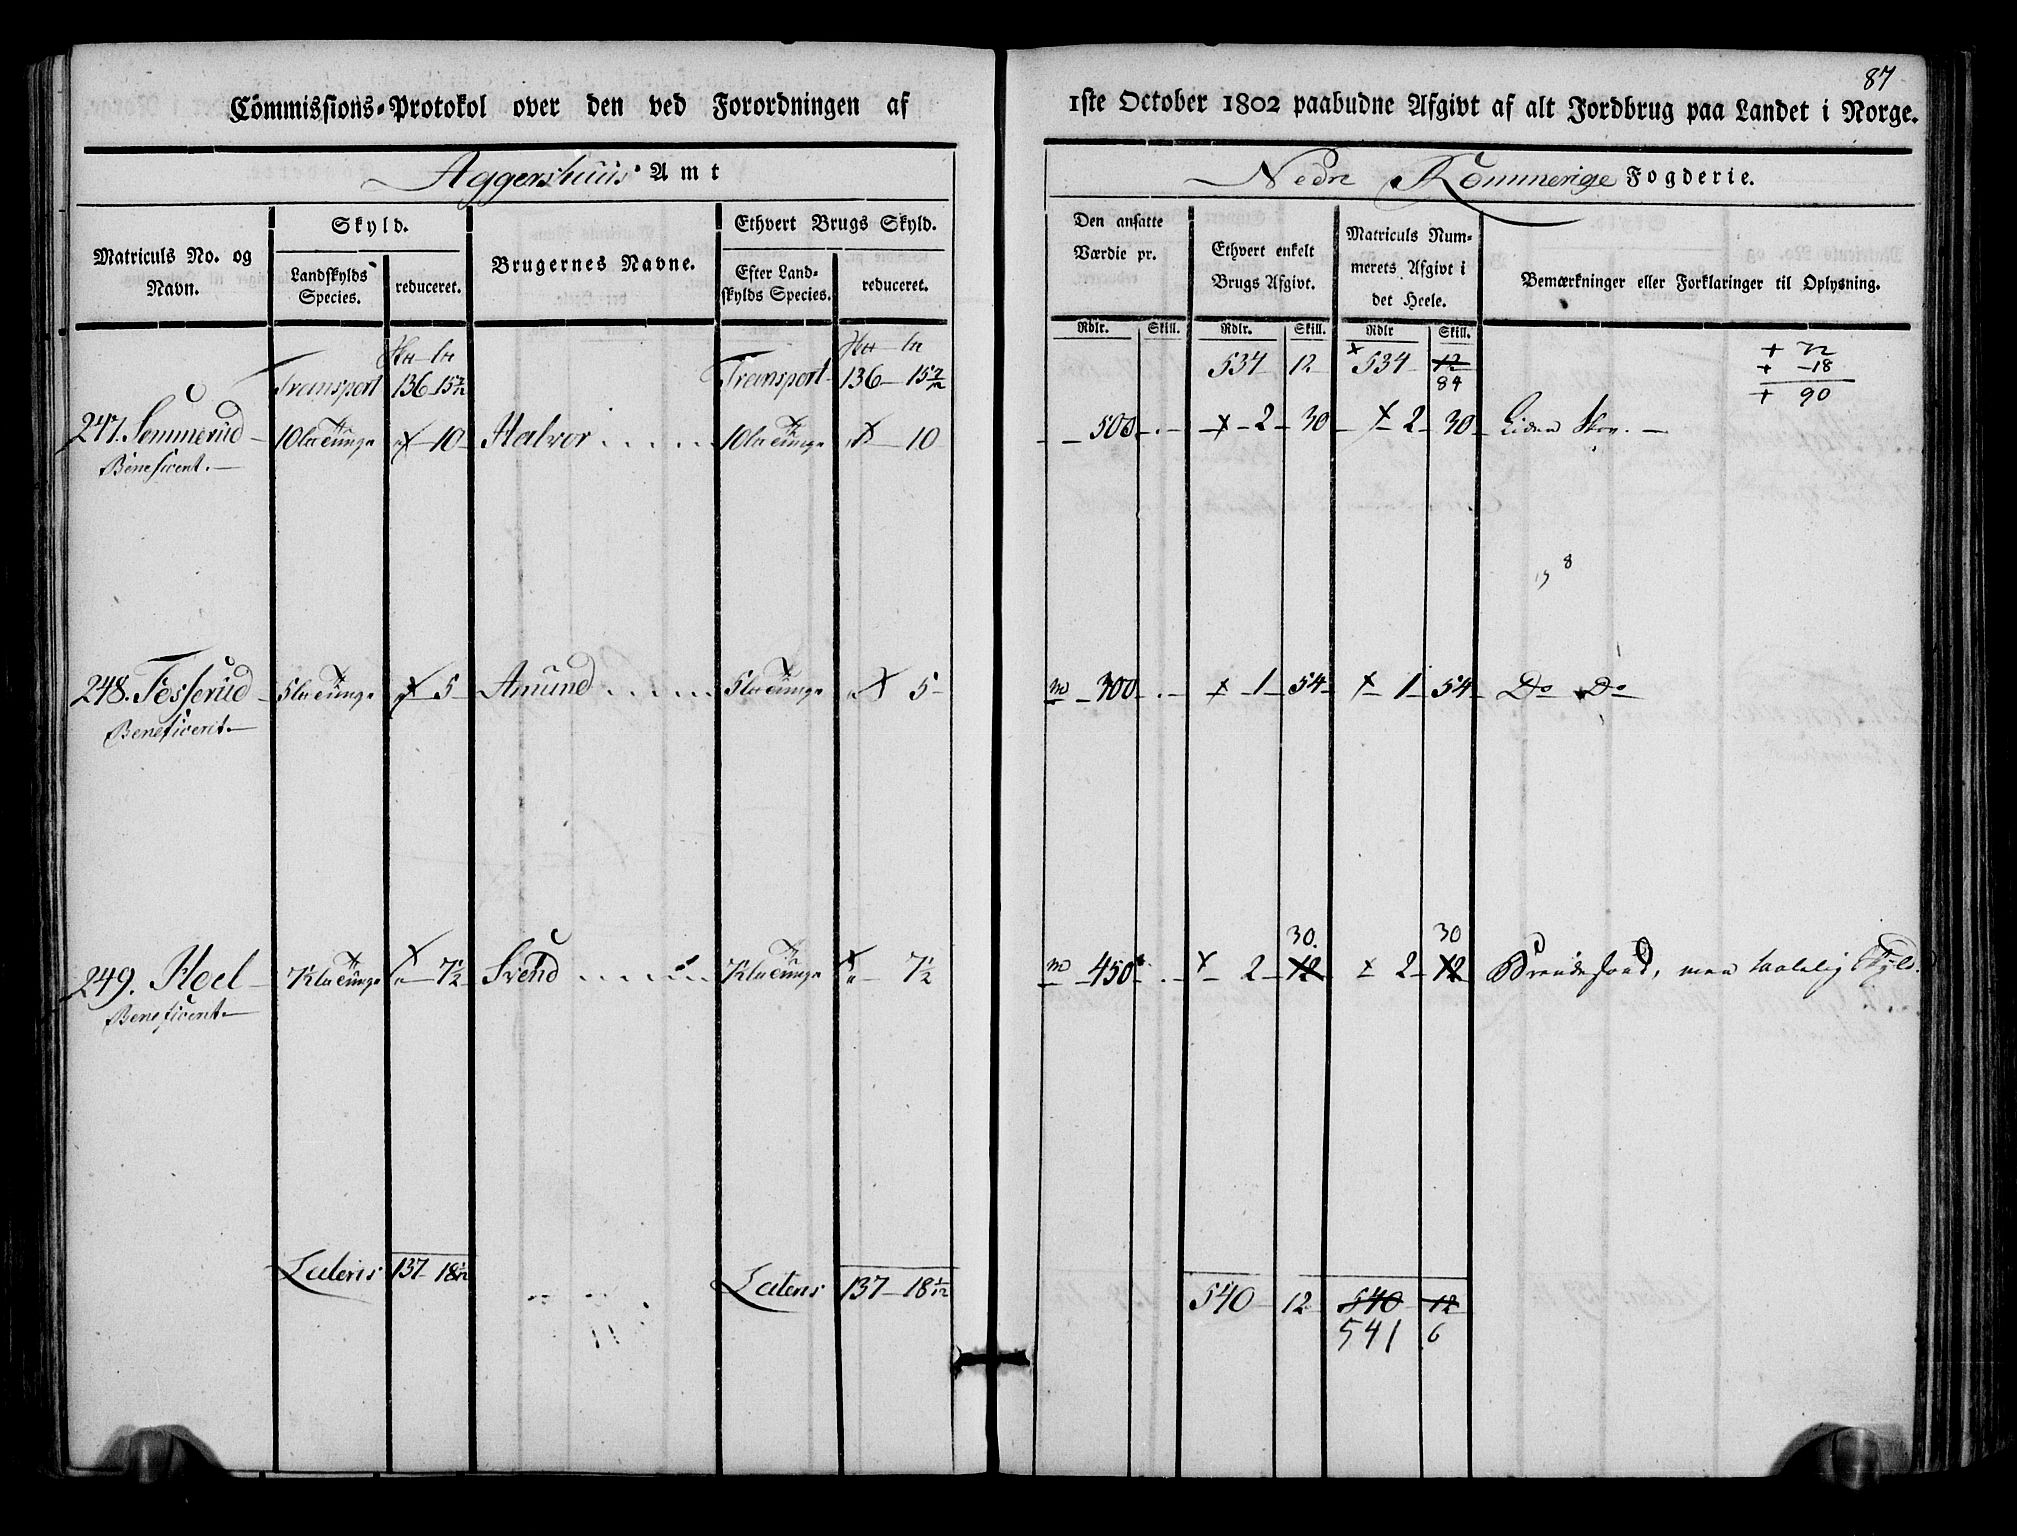 87
Commissions-Protokol over den ved Forordningen af 1ste October 1802 paabudne Afgivt af alt Jordbrug paa Landet i Norge.
Aggershuus Amt
Nedre Rommerige Fogderie.
Matriculs No. og Navn.
Skyld.
Landskylds Species.
reduceret.
Brugernes Navne.
Ethvert Brugs Skyld.
Efter Landskylds Species.
reduceret.
Den ansatte Værdie pr.
Ethvert enkelt Brugs Afgivt.
Matriculs Nummerets Afgivt i det Heele.
Bemærkninger eller Forklaringer til Oplysning.
Rdlr. Skill. Rdlr. Skill. Rdlr Skill.
Transport 136 15 7/12 Transport 136 15 7/12 534 12 534 12
84
+ 72
+ 18
+ 90
247. Sommerud 10 10 Halvor 10 10 500 2 30 2 30 Liden Skov.
Beneficeret.
248. Tosserud 5 5 Amund 5 5 300 1 54 1 54 Do Do
Beneficeret
30. 30
249. Hoel 7½ 7½ Svend 7½ 7½ 450 2 12 2 12
Beneficeret
Lateris 137 18 1/12 Lateris 137 18 1/12 540 12 540 12
541 6